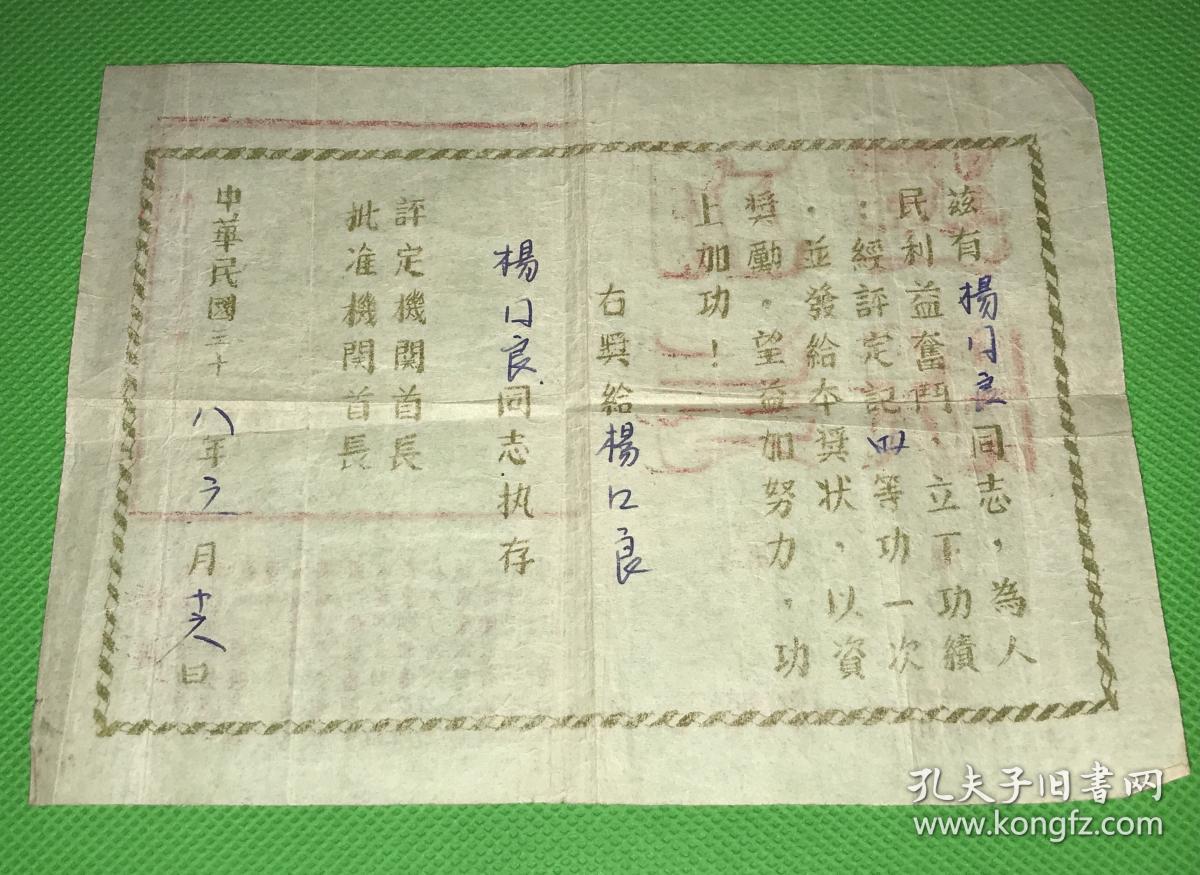 兹有楊同良同志，為人
民利益奮鬥，立下功績
：經評定記四等功一次
．並發給本奨状，以資
奨勵．望益加努力．功
上加功！
右奨給楊口良
楊同良同志执存
評定機関首長
批准機関首長
中華民國三十八年六月十六日
孔夫子旧书网
www.kongfz.com